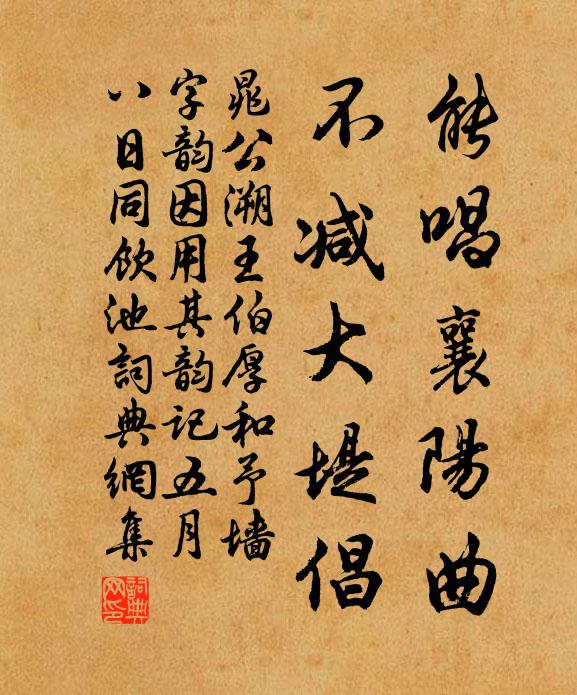 能唱襄陽曲
不減大堤倡
晁公溯王伯厚和予墻
字韵因用其韵記五月
八日同飲池詞典網集
詞典网印